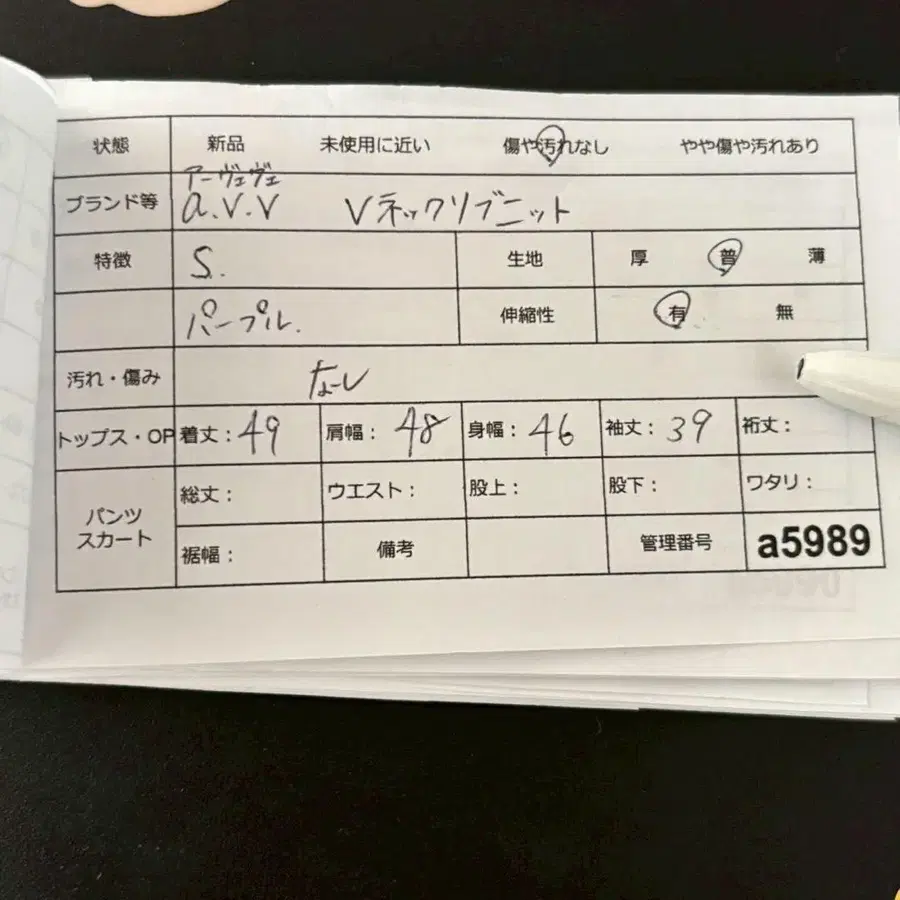 状態 新品 未使用に近い 傷や汚れなし やや傷や汚れあり
アーヴェヴェ
ブランド等 a.v.v Vネックリブニット
特徴 S. 生地 厚 普 薄
パープル. 伸縮性 有 無
汚れ・傷み なし
トップス・OP 着丈：49 肩幅：48 身幅：46 袖丈：39 裄丈：
パンツ 総丈： ウエスト： 股上： 股下： ワタリ：
スカート 裾幅： 備考 管理番号 a5989